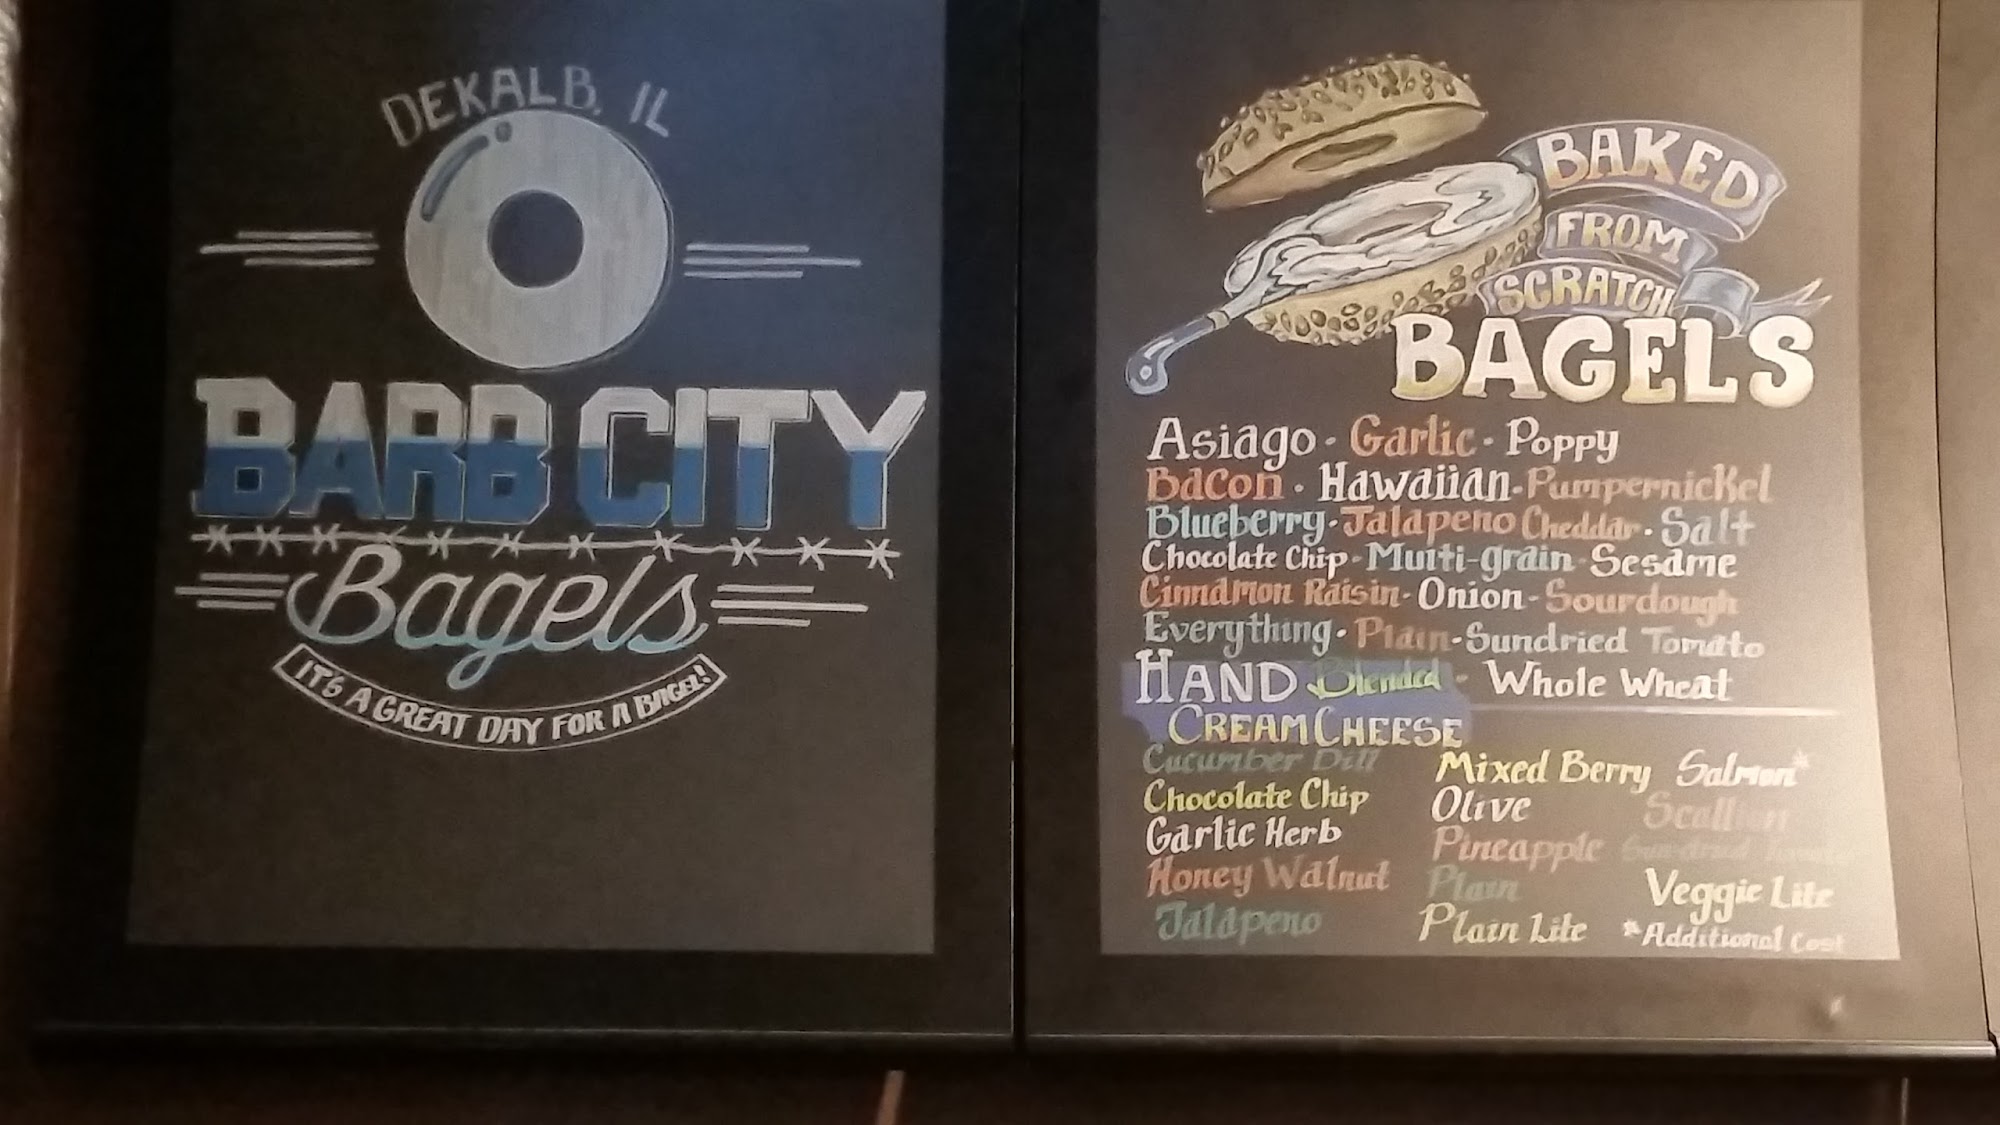 DEKALB, IL
BARB CITY
Bagels
IT'S A GREAT DAY FOR A BAGEL!
BAKED
FROM
SCRATCH
BAGELS
Asiago - Garlic - Poppy
Bacon - Hawaiian - Pumpernickel
Blueberry - Jalapeno Cheddar - Salt
Chocolate Chip - Multi-grain - Sesame
Cinnamon Raisin - Onion - Sourdough
Everything - Plain - Sundried Tomato
HAND Blended - Whole Wheat
CREAM CHEESE
Cucumber Dill Mixed Berry Salmon*
Chocolate Chip Olive Scallion
Garlic Herb Pineapple Sun-dried Tomato
Honey Walnut Plain Veggie Lite
Jalapeno Plain Lite *Additional Cost